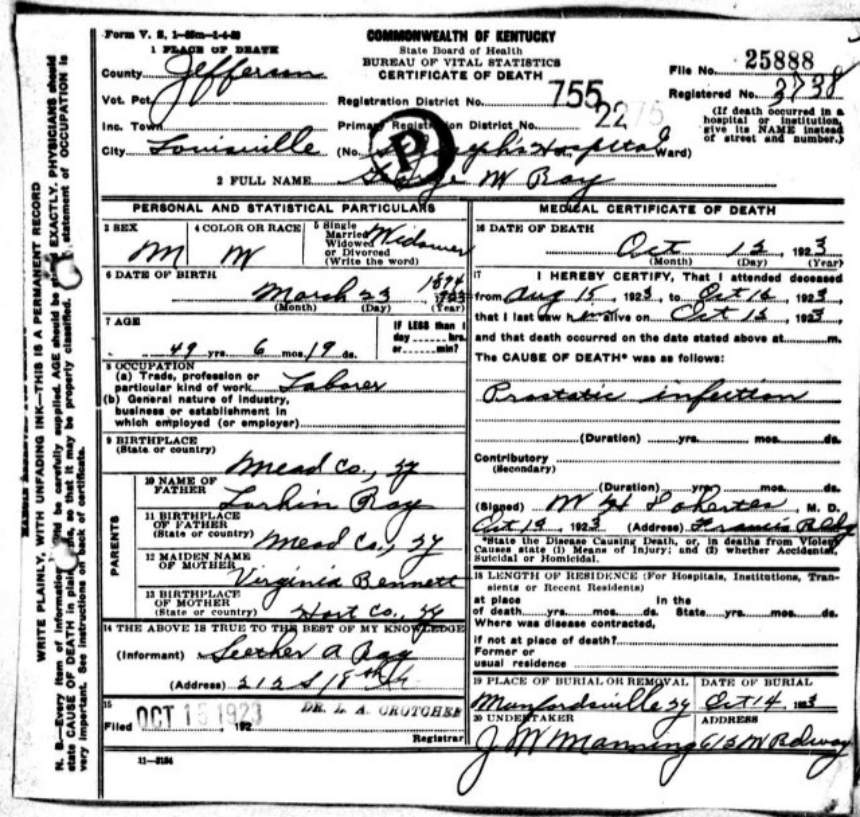 Form V. S. 1-
COMMONWEALTH OF KENTUCKY
State Board of Health
BUREAU OF VITAL STATISTICS
CERTIFICATE OF DEATH
File No. 25888
Registered No. 3738
(If death occurred in a hospital or institution, give its NAME instead of street and number.)
1 PLACE OF DEATH
County Jefferson
Vot. Pct.
Registration District No. 755
Inc. Town
Primary Registration District No. 2275
City Louisville (No. St Josephs Hospital Ward)
P
2 FULL NAME George W Ray
PERSONAL AND STATISTICAL PARTICULARS
3 SEX M
4 COLOR OR RACE W
5 Single Married Widowed or Divorced (Write the word) Widower
6 DATE OF BIRTH
March 23 1874 1923
(Month) (Day) (Year)
7 AGE
49 yrs. 6 mos. 19 ds.
IF LESS than 1 day hrs. or min?
8 OCCUPATION
(a) Trade, profession or particular kind of work Laborer
(b) General nature of industry, business or establishment in which employed (or employer)
9 BIRTHPLACE
(State or country) Mead Co., Ky
PARENTS
10 NAME OF FATHER Larkin Ray
11 BIRTHPLACE OF FATHER (State or country) Mead Co., Ky
12 MAIDEN NAME OF MOTHER Virginia Bennett
13 BIRTHPLACE OF MOTHER (State or country) Hart Co., Ky
14 THE ABOVE IS TRUE TO THE BEST OF MY KNOWLEDGE
(Informant) Leether A Ray
(Address) 212 S 18th St
15
Filed OCT 15 1923, 192 DR. L. A. CROTCHER
Registrar
11-3184
MEDICAL CERTIFICATE OF DEATH
16 DATE OF DEATH
Oct 12, 1923
(Month) (Day) (Year)
17 I HEREBY CERTIFY, That I attended deceased
from Aug 15, 1923, to Oct 12, 1923,
that I last saw him alive on Oct 12, 1923
and that death occurred on the date stated above at m.
The CAUSE OF DEATH* was as follows:
Prostatic infection
(Duration) yrs. mos. ds.
Contributory
(Secondary)
(Duration) yrs. mos. ds.
(Signed) W H , M. D.
Oct 14, 1923 (Address) Francis Bldg
*State the Disease Causing Death, or, in deaths from Violent
Causes state (1) Means of Injury; and (2) whether Accidental,
Suicidal or Homicidal.
18 LENGTH OF RESIDENCE (For Hospitals, Institutions, Tran-
sients or Recent Residents)
at place of death yrs. mos. ds. In the State yrs. mos. ds.
Where was disease contracted,
if not at place of death?
Former or
usual residence
19 PLACE OF BURIAL OR REMOVAL Munfordsville Ky
DATE OF BURIAL Oct 14, 1923
20 UNDERTAKER J W Manning
ADDRESS 613 W Bdway
WRITE PLAINLY, WITH UNFADING INK—THIS IS A PERMANENT RECORD
N. B.—Every item of information should be carefully supplied. AGE should be stated EXACTLY. PHYSICIANS should
state CAUSE OF DEATH in plain terms, so that it may be properly classified. statement of OCCUPATION is
very important. See instructions on back of certificate.